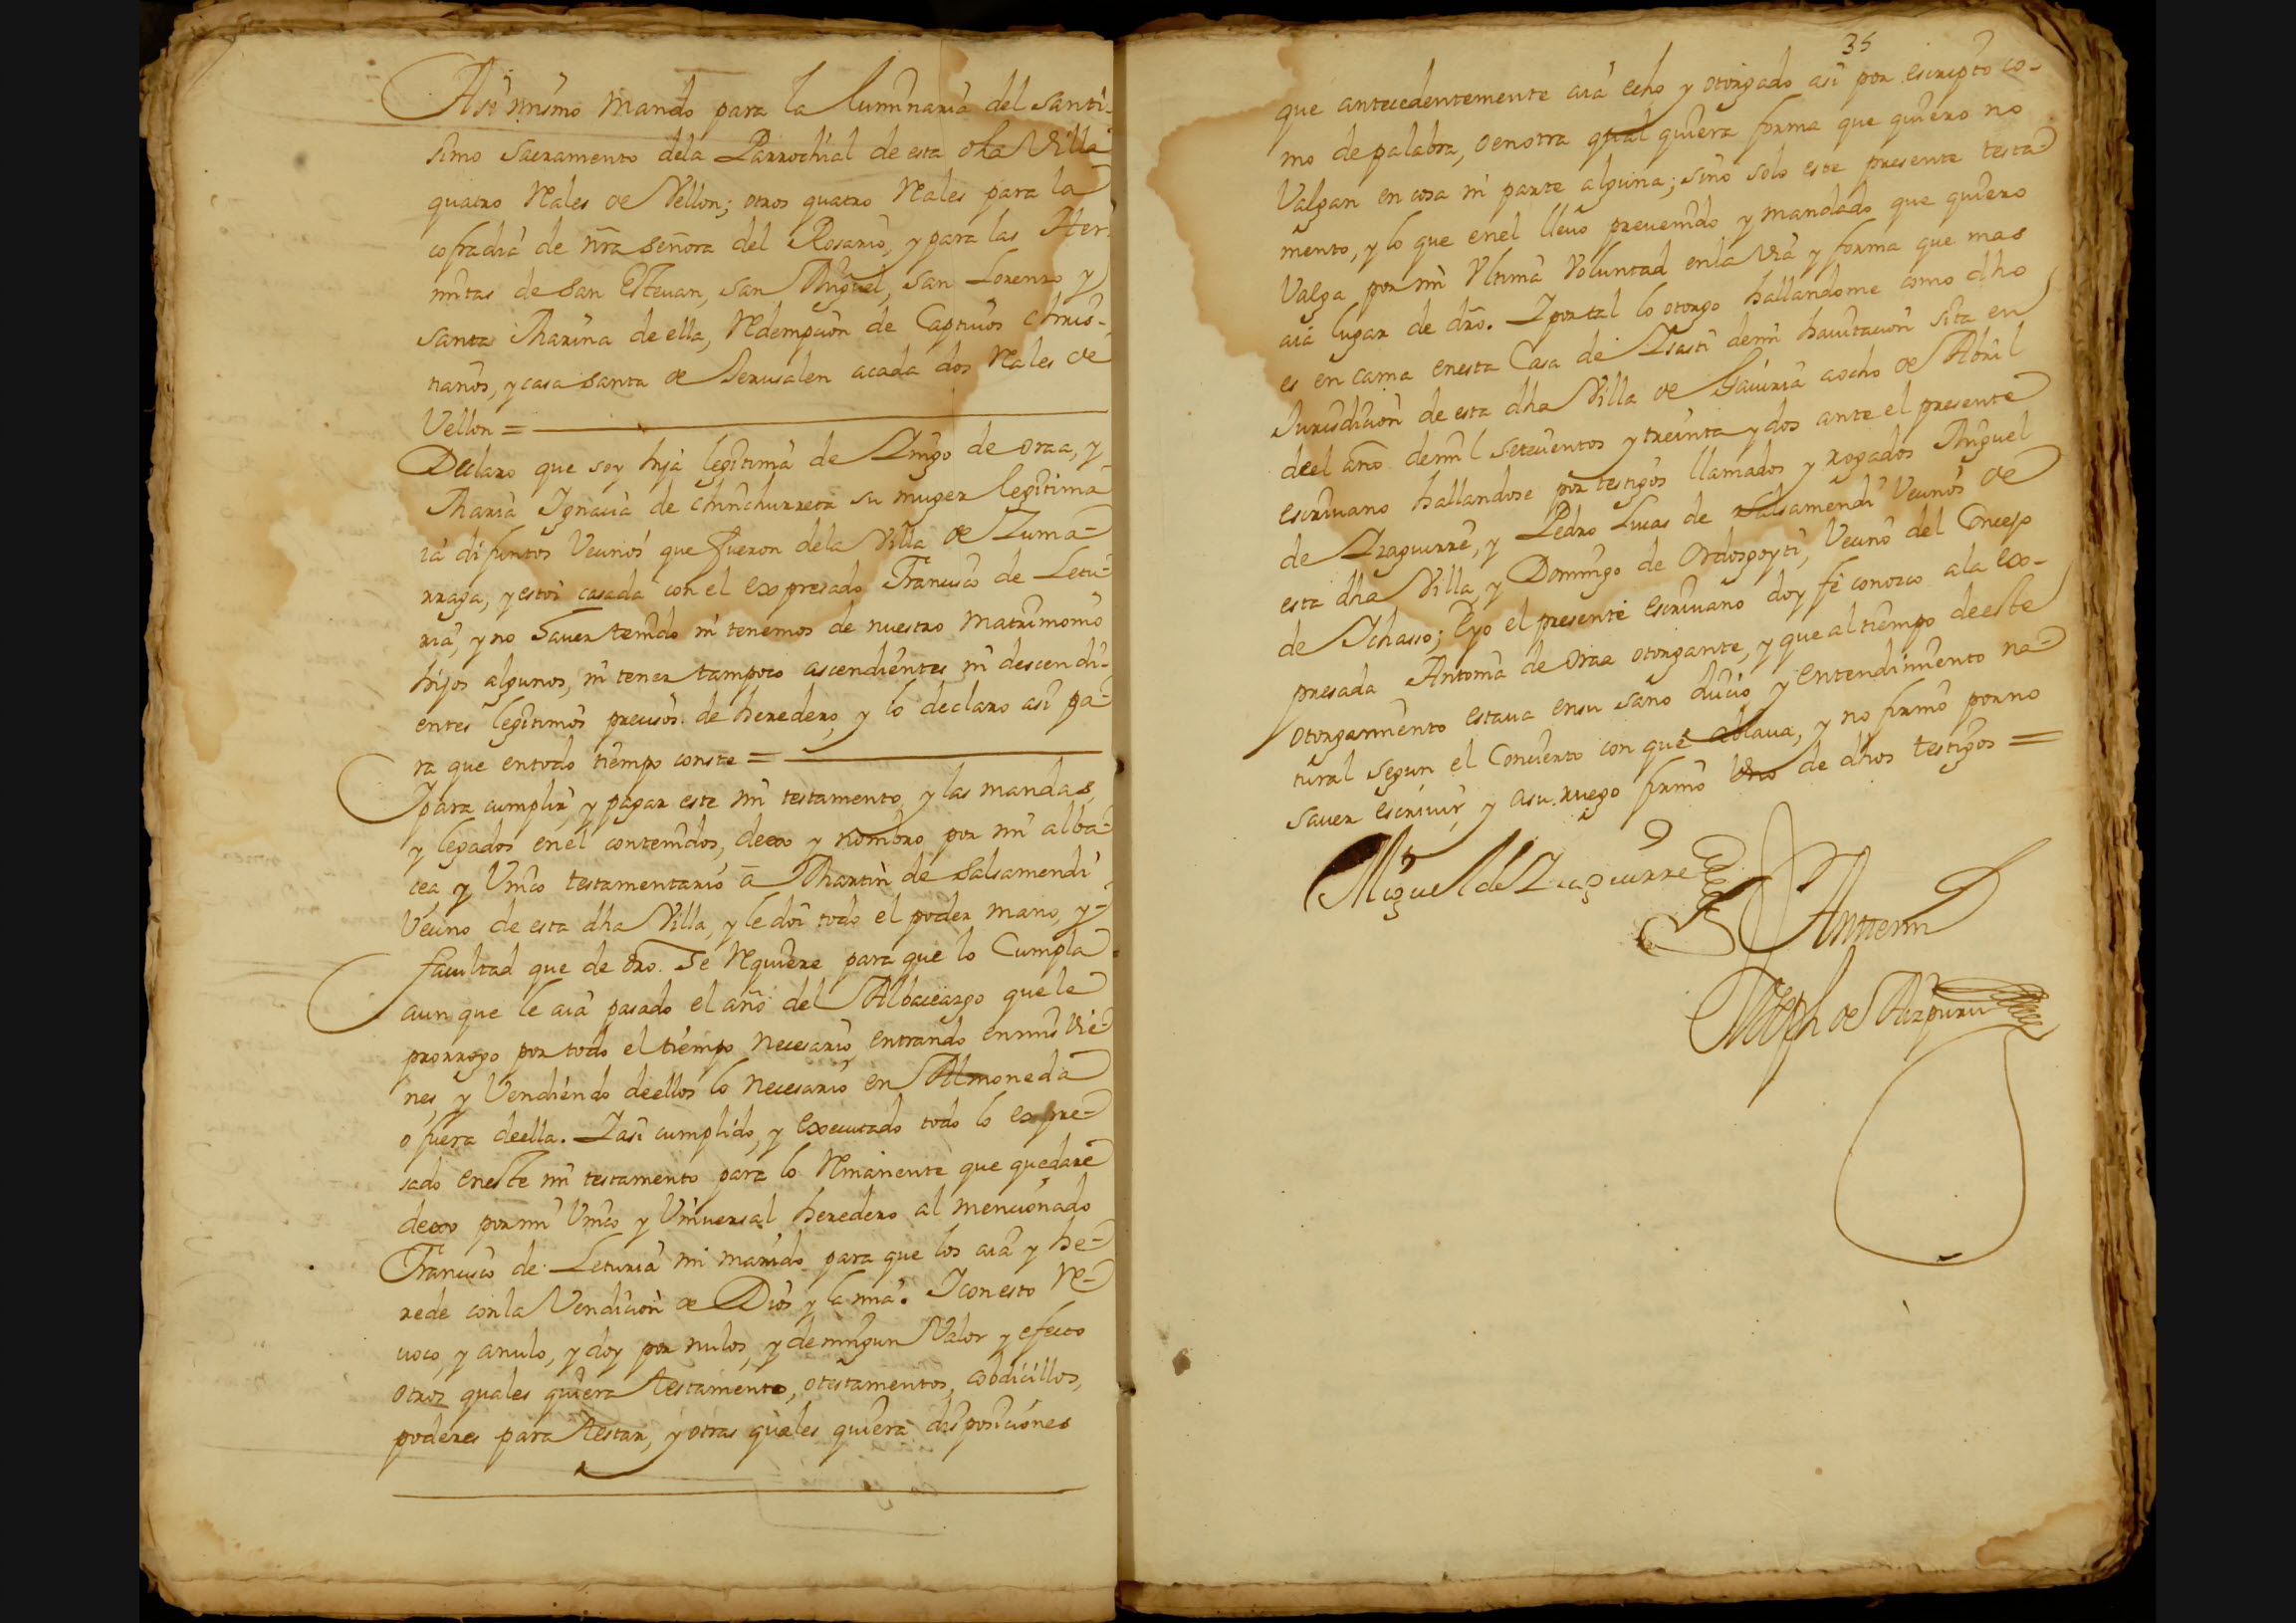 Asi mismo mando para la luminaria del santi-
simo sacramento dela Parrochial de esta dha Villa
quatro Rales de Vellon; otros quatro Rales para la
cofradia de nrã señora del Rosario, y para las Her-
mitas de San Esteuan, san Miguel, san Lorenzo y
santa Marina de ella, Redempcion de Captiuos chris-
tianos, y casa santa de Jerusalen a cada dos Rales de
Vellon =
Declaro que soy hija legitima de Domingo de oraa, y
Maria Ignacia de Chinchurreta su muger legitima
ia difuntos Vecinos que fueron dela Villa de Zuma-
rraga, y estoi casada con el expresado Francisco de Letu-
ria, y no hauer tenido ni tenemos de nuestro matrimonio
hijos algunos, ni tener tampoco ascendientes ni descendi-
entes legitimos precisos de heredero, y lo declaro asi pa-
ra que entodo tiempo conste =
Ipara cumplir, y pagar este mi testamento, y las mandas,
y legados enel contenidos, dexo y nombro por mi alba-
cea y Unico testamentario a Martin de Salsamendi
Vecino de esta dha Villa, y le doi todo el poder mano, y
facultad que de dro. se Requiere para que lo Cumpla
aun que le aia pasado el año del Albaceazgo que le
prorrogo por todo el tiempo necesario, entrando enmis Vie-
nes, y Vendiendo deellos lo necesario en Almoneda
o fuera deella. I asi cumplido, y executado todo lo expre-
sado eneste mi testamento para lo Remanente que quedare
dexo por mi Unico y Uniuersal heredero al mencionado
Francisco de Leturia mi marido para que los aia y he-
rede conla Vendicion de Dios y la mia. I con esto Re-
uoco, y anulo, y doy por nulos, y deningun Valor y efecto
otros quales quiera testamento, o testamentos, cobdicillos,
poderes para testar, y otras quales quiera disposiciones
35
que antecedentemente aia echo y otorgado asi por escripto co-
mo de palabra, o enotra qual quiera forma que quiero no
Valgan en cosa ni parte alguna; sino solo este presente testa-
mento, y lo que enel lleuo preuenido y mandado que quiero
Valga por mi Ultima Voluntad enla Via y forma que mas
aia lugar de dro. I por tal lo otorgo hallandome como dho
es en cama enesta Casa de Isasti demi hauitacion sita en
Jurisdicion de esta dha Villa de Gauiria aocho de Abril
deel año demil setecientos y treinta y dos ante el presente
escriuano hallandose por testigos llamados y rogados Miguel
de Izaguirre, y Pedro Lucas de Salsamendi Vecinos de
esta dha Villa, y Domingo de Ordozgoyti, Vecino del Concejo
de Ichasso; Eyo el presente escriuano doy fe conozco ala ex-
presada Antonia de Oraa otorgante, y que al tiempo deeste
otorgamiento estaua ensu sano Juicio y entendimiento na-
tural segun el Concierto con que ablaua, y no firmó por no
sauer escriuir, y asu ruego firmó Uno de dhos testigos =
Miguel de Izaguirre
Ante mi
Joseph de Aizpuru